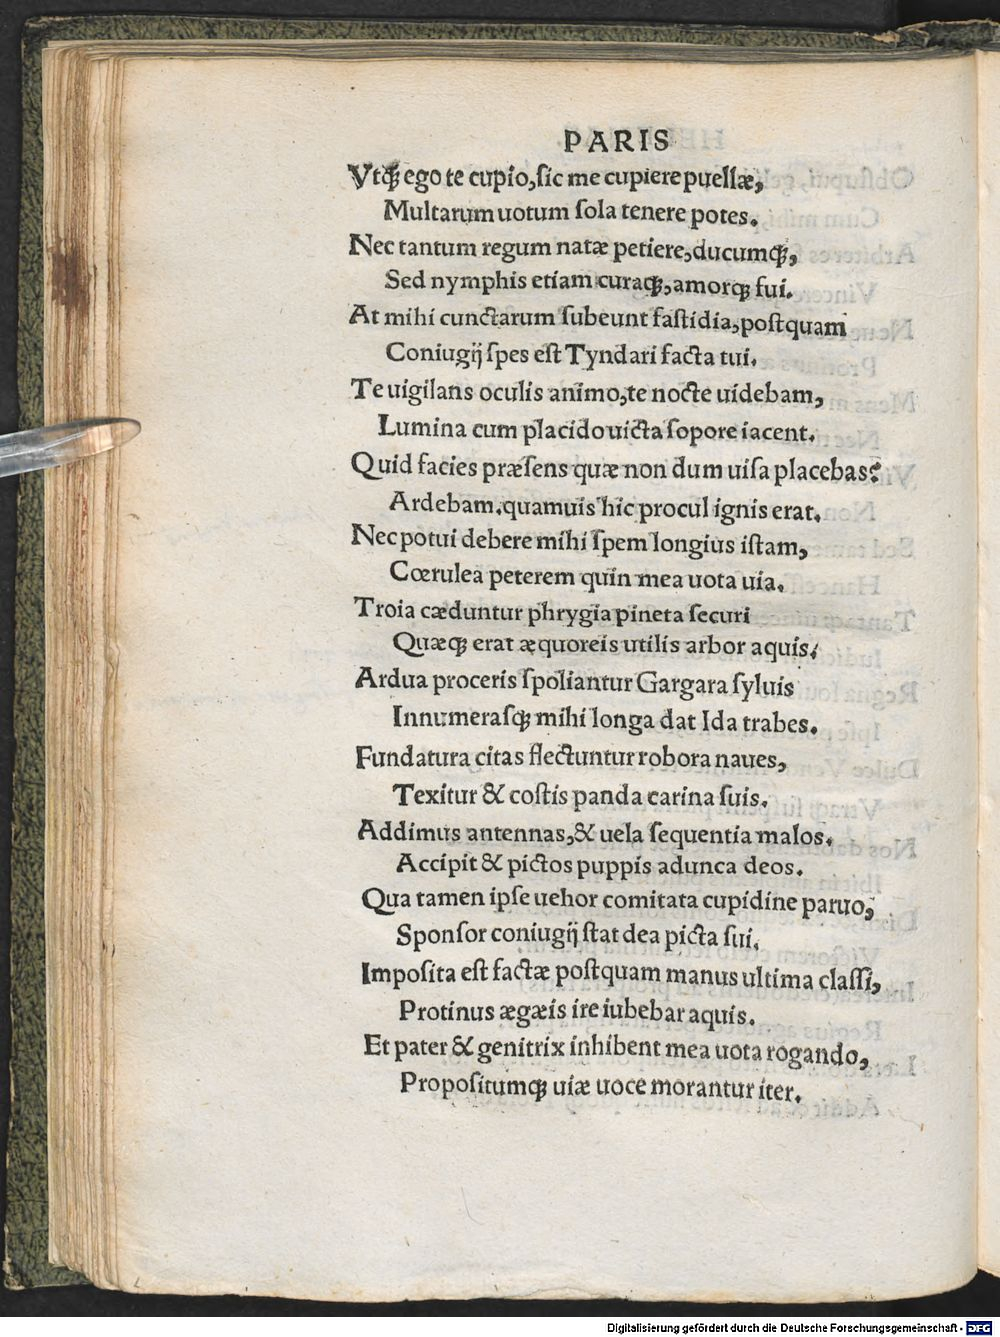 PARIS
Vtqꝫ ego te cupio, ſic me cupiere puellæ,
Multarum uotum ſola tenere potes.
Nec tantum regum natæ petiere, ducumqꝫ,
Sed nymphis etiam curaqꝫ, amorqꝫ fui.
At mihi cunctarum ſubeunt faſtidia, poſtquam
Coniugij ſpes eſt Tyndari facta tui.
Te uigilans oculis animo, te nocte uidebam,
Lumina cum placido uicta ſopore iacent.
Quid facies præſens quæ non dum uiſa placebas?
Ardebam. quamuis hic procul ignis erat.
Nec potui debere mihi ſpem longius iſtam,
Cœrulea peterem quin mea uota uia.
Troia cæduntur phrygia pineta ſecuri
Quæqꝫ erat æquoreis utilis arbor aquis.
Ardua proceris ſpoliantur Gargara ſyluis
Innumeraſqꝫ mihi longa dat Ida trabes.
Fundatura citas flectuntur robora naues,
Texitur & coſtis panda carina ſuis.
Addimus antennas, & uela ſequentia malos.
Accipit & pictos puppis adunca deos.
Qua tamen ipſe uehor comitata cupidine paruo,
Sponſor coniugij ſtat dea picta ſui.
Impoſita eſt factæ poſtquam manus ultima claſſi,
Protinus ægæis ire iubebar aquis.
Et pater & genitrix inhibent mea uota rogando,
Propoſitumqꝫ uiæ uoce morantur iter.
Digitalisierung gefördert durch die Deutsche Forschungsgemeinschaft - DFG